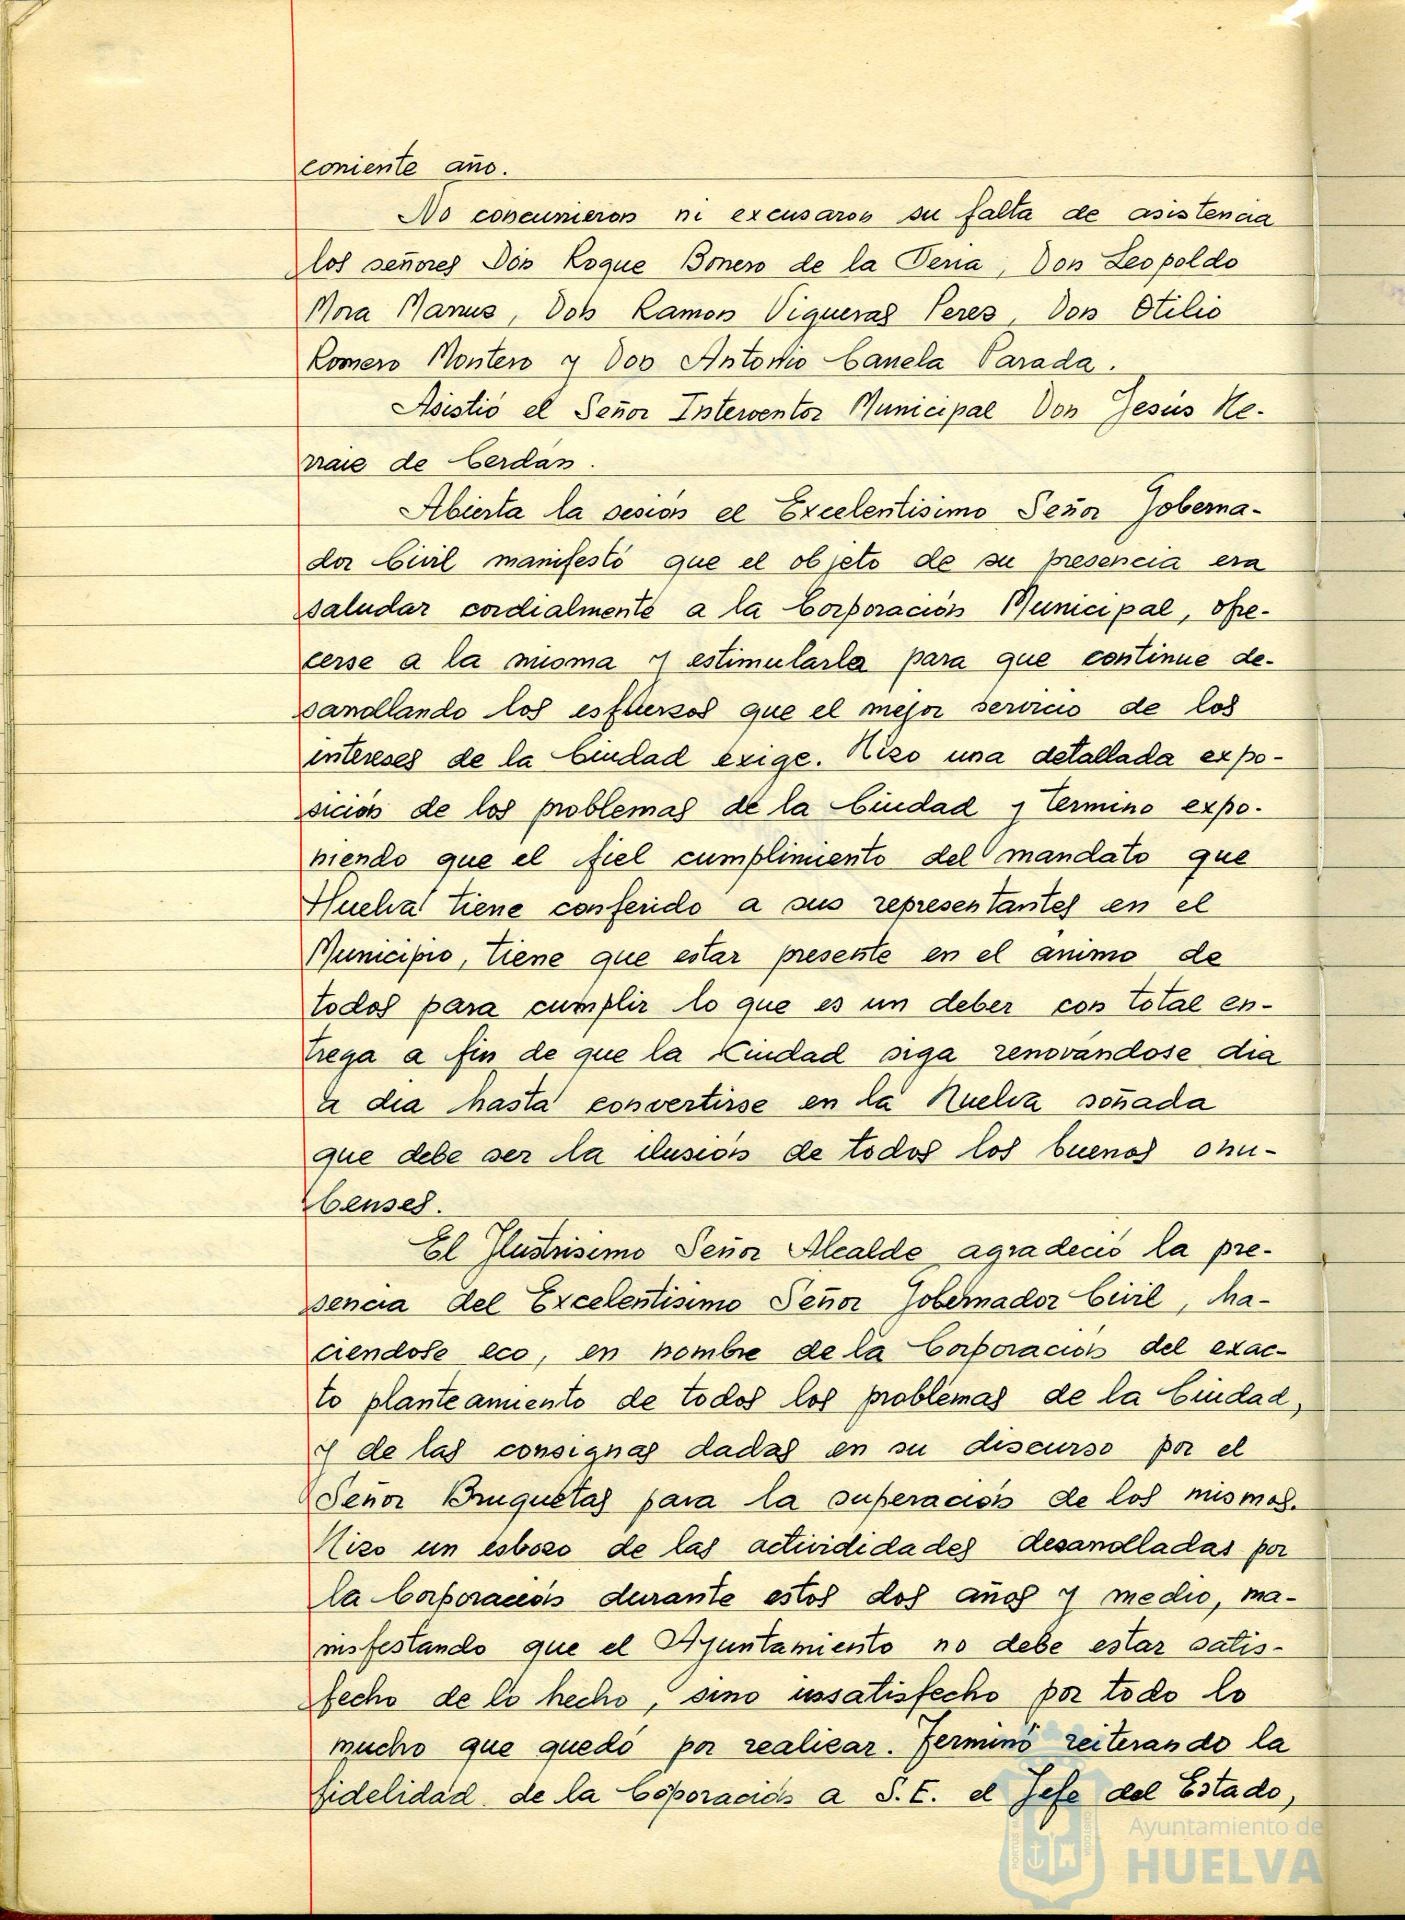 corriente año.
No concurrieron ni excusaron su falta de asistencia
los señores Don Roque Borrero de la Feria, Don Leopoldo
Mora Marrus, Don Ramon Vigueras Perez, Don Otilio
Romero Montero y Don Antonio Canela Parada.
Asistió el Señor Interventor Municipal Don Jesús He-
rraiz de Cerdán.
Abierta la sesión el Excelentisimo Señor Goberna-
dor Civil manifestó que el objeto de su presencia era
saludar cordialmente a la Corporación Municipal, ofre-
cerse a la misma y estimularla para que continue de-
sarrollando los esfuerzos que el mejor servicio de los
intereses de la Ciudad exige. Hizo una detallada expo-
sición de los problemas de la Ciudad y termino expo-
niendo que el fiel cumplimiento del mandato que
Huelva tiene conferido a sus representantes en el
Municipio, tiene que estar presente en el animo de
todos para cumplir lo que es un deber con total en-
trega a fin de que la Ciudad siga renovándose dia
a dia hasta convertirse en la Huelva soñada
que debe ser la ilusión de todos los buenos onu-
benses.
El Ilustrisimo Señor Alcalde agradeció la pre-
sencia del Excelentisimo Señor Gobernador Civil, ha-
ciendose eco, en nombre de la Corporación del exac-
to planteamiento de todos los problemas de la Ciudad,
y de las consignas dadas en su discurso por el
Señor Bruquetas para la superación de los mismos.
Hizo un esbozo de las activididades desarrolladas por
la Corporación durante estos dos años y medio, ma-
nisfestando que el Ayuntamiento no debe estar satis-
fecho de lo hecho, sino insatisfecho por todo lo
mucho que quedó por realizar. Terminó reiterando la
fidelidad de la Coporación a S.E. el Jefe del Estado,
Ayuntamiento de
HUELVA